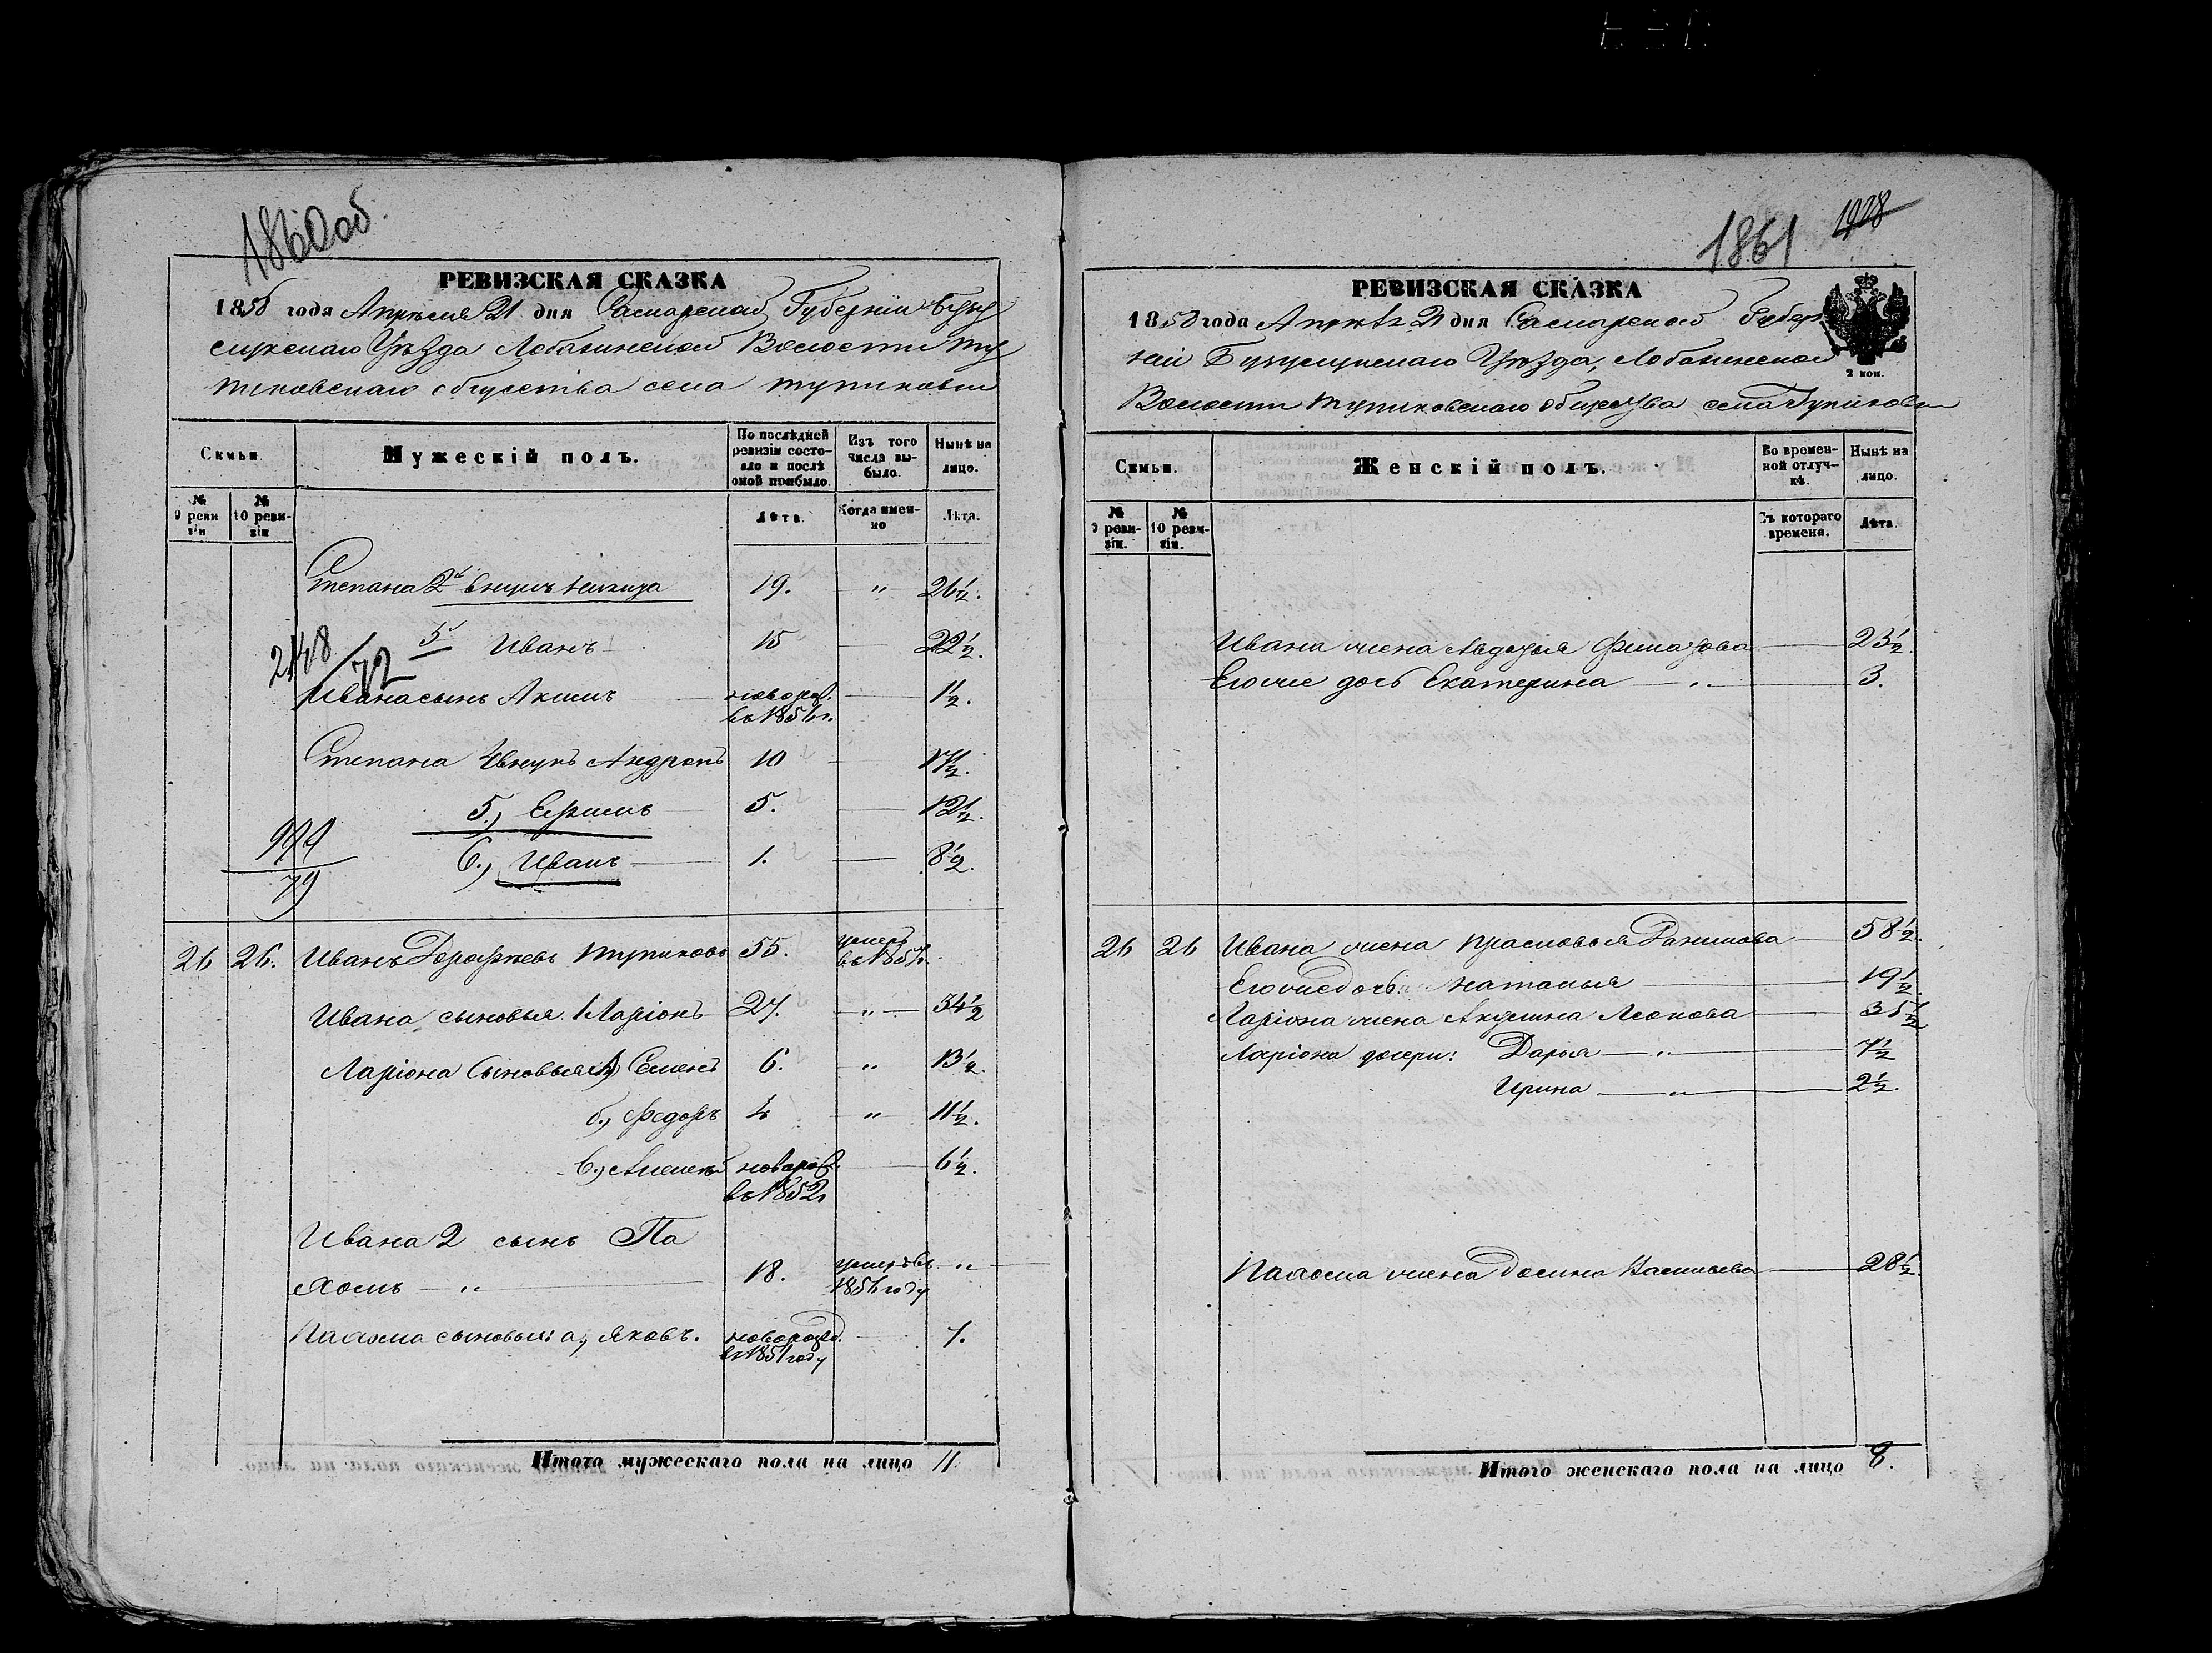 1860 об.
РЕВИЗСКАЯ СКАЗКА
1858 года Апреля 21 дня Самарской Губернии Бугу
Уѣзда Лобазинской Волости Ту
пиковскаго общества села Тупиковки
Семьи.
Мужескій полъ.
По послѣдней ревизіи состояло и послѣ оной прибыло.
Изъ того числа выбыло.
Нынѣ на лицо.
№ 9 ревизіи
№ 10 ревизіи
Лѣта.
Когда именно
Лѣта.
Степана 2й внукъ Никита 19. " 26½.
3й Иванъ 15 22½.
2148/72
Ивана сынъ Акимъ новорож. 1½.
въ 1856 г.
Степана 4 внукъ Андронъ 10 17½.
5, Ефимъ 5. 12½.
6., Иванъ 1. 8½.
79
26 26. Иванъ Дорофеевъ Тупиковъ 55. умеръ
въ 185
Ивана сыновья 1 Ларіонъ 27. " 34½
Ларіона Сыновья а) Семенъ 6. " 13½.
б., Федоръ 4 " 11½.
в., Алексѣй новорож. 6½.
въ 1852 г
Ивана 2 сынъ Па
хомъ " 18. умеръ въ "
1856 году
Пахома сыновья: а, Яковъ. новорожд. 7.
въ 1851 году
Итого мужескаго пола на лицо 11.
1861 1928
РЕВИЗСКАЯ СКАЗКА
1858 года Апрѣля 21 дня Самарской Губер
ніи Бузулукскаго Уѣзда, Лобазинской
2 коп.
Волости Тупиковскаго общества села Тупиковки
Семьи.
Женскій полъ.
Во временной отлучкѣ.
Нынѣ на лицо.
№ 9 ревизіи.
№ 10 ревизіи.
Съ котораго времени.
Лѣта.
Ивана жена Авдотья Филатова 23½.
Его же дочь Екатерина " 3.
26 26 Ивана жена Прасковья Данилова 58½.
Его же дочь Наталья 19½.
Ларіона жена Акулина Леонова 35½
Ларіона дочери: Дарья " 7½
Ирина " 2½.
Пахома жена Васильева 28½.
Итого женскаго пола на лицо 8.